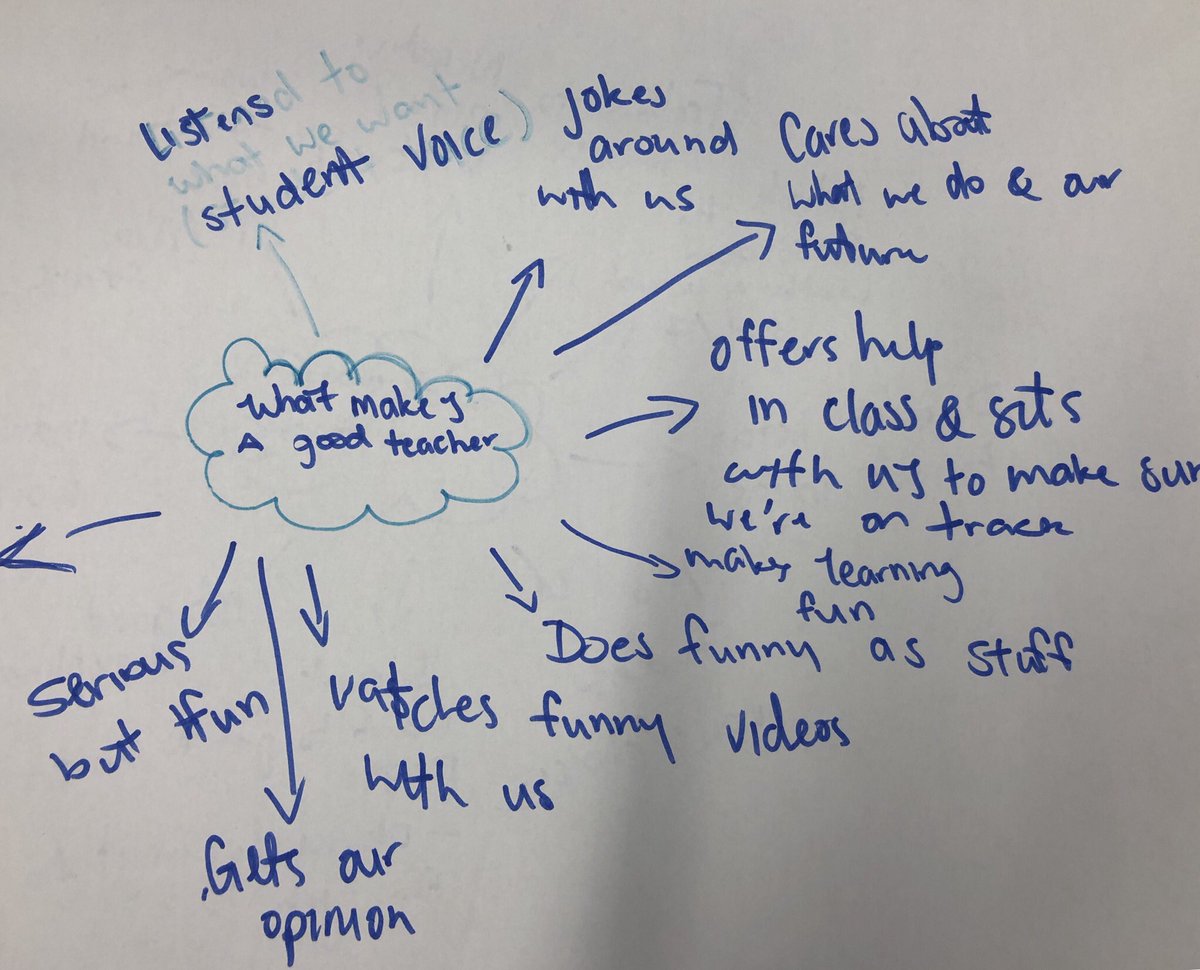 Listensd to
what we want
(student voice)
jokes
around
with us
Cares about
what we do & our
future
What makes
A good teacher
offers help
in class & sits
with us to make sur
we're on track
makes learning
fun
Does funny as stuff
watches funny videos
with us
Gets our
opinion
serious
but fun